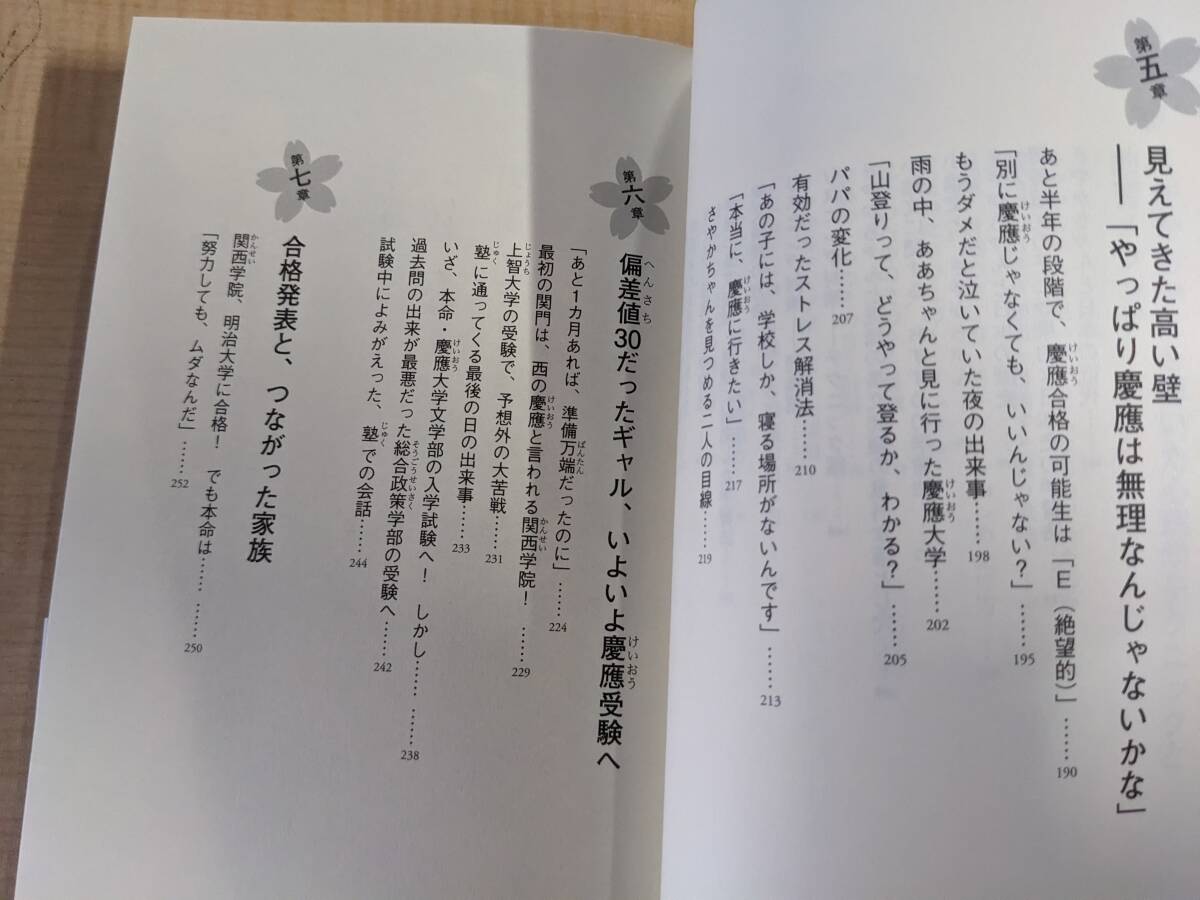 第五章
見えてきた高い壁
――「やっぱり慶應は無理なんじゃないかな」
あと半年の段階で、慶應合格の可能生は「E（絶望的）」……190
「別に慶應じゃなくても、いいんじゃない？」……195
もうダメだと泣いていた夜の出来事……198
雨の中、ああちゃんと見に行った慶應大学……202
「山登りって、どうやって登るか、わかる？」……205
パパの変化……207
有効だったストレス解消法……210
「あの子には、学校しか、寝る場所がないんです」……213
「本当に、慶應に行きたい」……217
さやかちゃんを見つめる二人の目線……219
第六章
偏差値30だったギャル、いよいよ慶應受験へ
「あと1カ月あれば、準備万端だったのに」……224
最初の関門は、西の慶應と言われる関西学院！……229
上智大学の受験で、予想外の大苦戦……231
塾に通ってくる最後の日の出来事……233
いざ、本命・慶應大学文学部の入学試験へ！　しかし……　……238
過去問の出来が最悪だった総合政策学部の受験へ……242
試験中によみがえった、塾での会話……244
第七章
合格発表と、つながった家族
関西学院、明治大学に合格！　でも本命は……　……250
「努力しても、ムダなんだ」……252